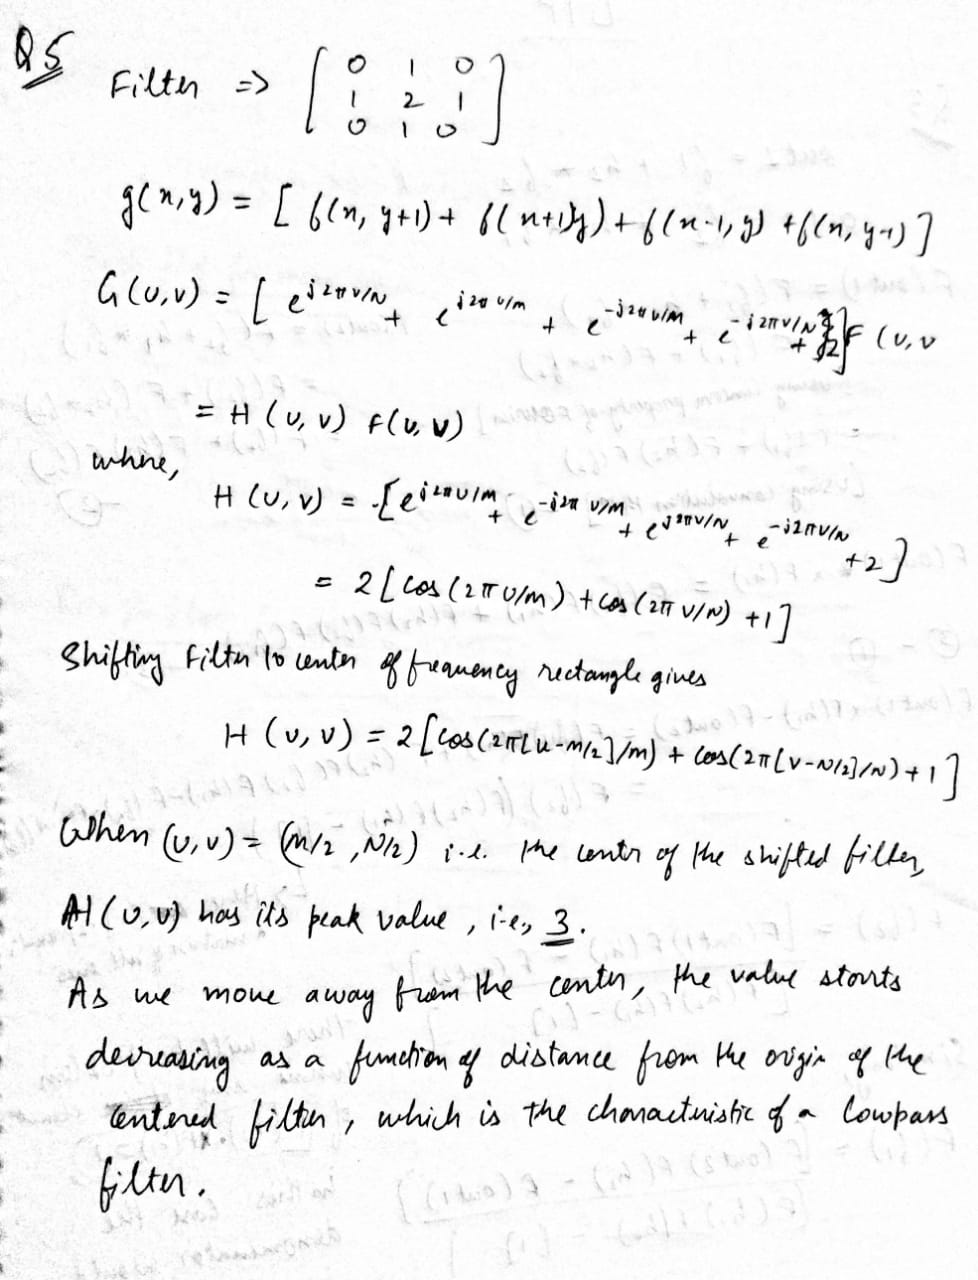 Q5
Filter => [ 0 1 0
1 2 1
0 1 0 ]
g(x,y) = [ f(x, y+1) + f(x+1,y) + f(x-1,y) + f(x, y-1) ]
G(u,v) = [ e^{j2πv/N} + e^{j2πu/M} + e^{-j2πu/M} + e^{-j2πv/N} + 2] F(u,v
= H(u,v) F(u,v)
where,
H(u,v) = [e^{j2πu/M} + e^{-j2πu/M} + e^{j2πv/N} + e^{-j2πv/N} + 2]
= 2[cos(2πu/M) + cos(2πv/N) + 1]
Shifting Filter to center of frequency rectangle gives
H(u,v) = 2[cos(2π[u-M/2]/M) + cos(2π[v-N/2]/N) + 1]
When (u,v) = (M/2, N/2) i.e. the center of the shifted filter,
H(u,v) has its peak value, i.e, 3.
As we move away from the center, the value starts
decreasing as a function of distance from the origin of the
centered filter, which is the characteristic of a lowpass
filter.